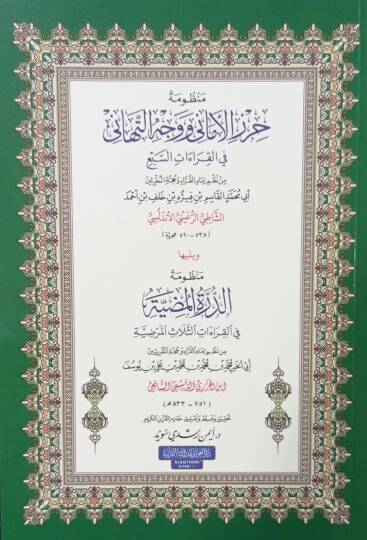 منظومة
حرز الأماني ووجه التهاني
في القراءات السبع
من نظم إمام القراء وحجة المقرئين
أبي محمد القاسم بن فيره بن خلف بن أحمد
الشاطبي الرعيني الأندلسي
(٥٣٨ - ٥٩٠ هجرية)
ويليها
منظومة
الدرة المضية
في القراءات الثلاث المرضية
من نظم إمام القراء وحجة المقرئين
أبي الخير محمد بن محمد بن محمد بن علي بن يوسف
ابن الجزري الدمشقي الشافعي
(٧٥١ - ٨٣٣ هـ)
تحقيق وضبط وتعليق خادم القرآن الكريم
د. أيمن رشدي سويد